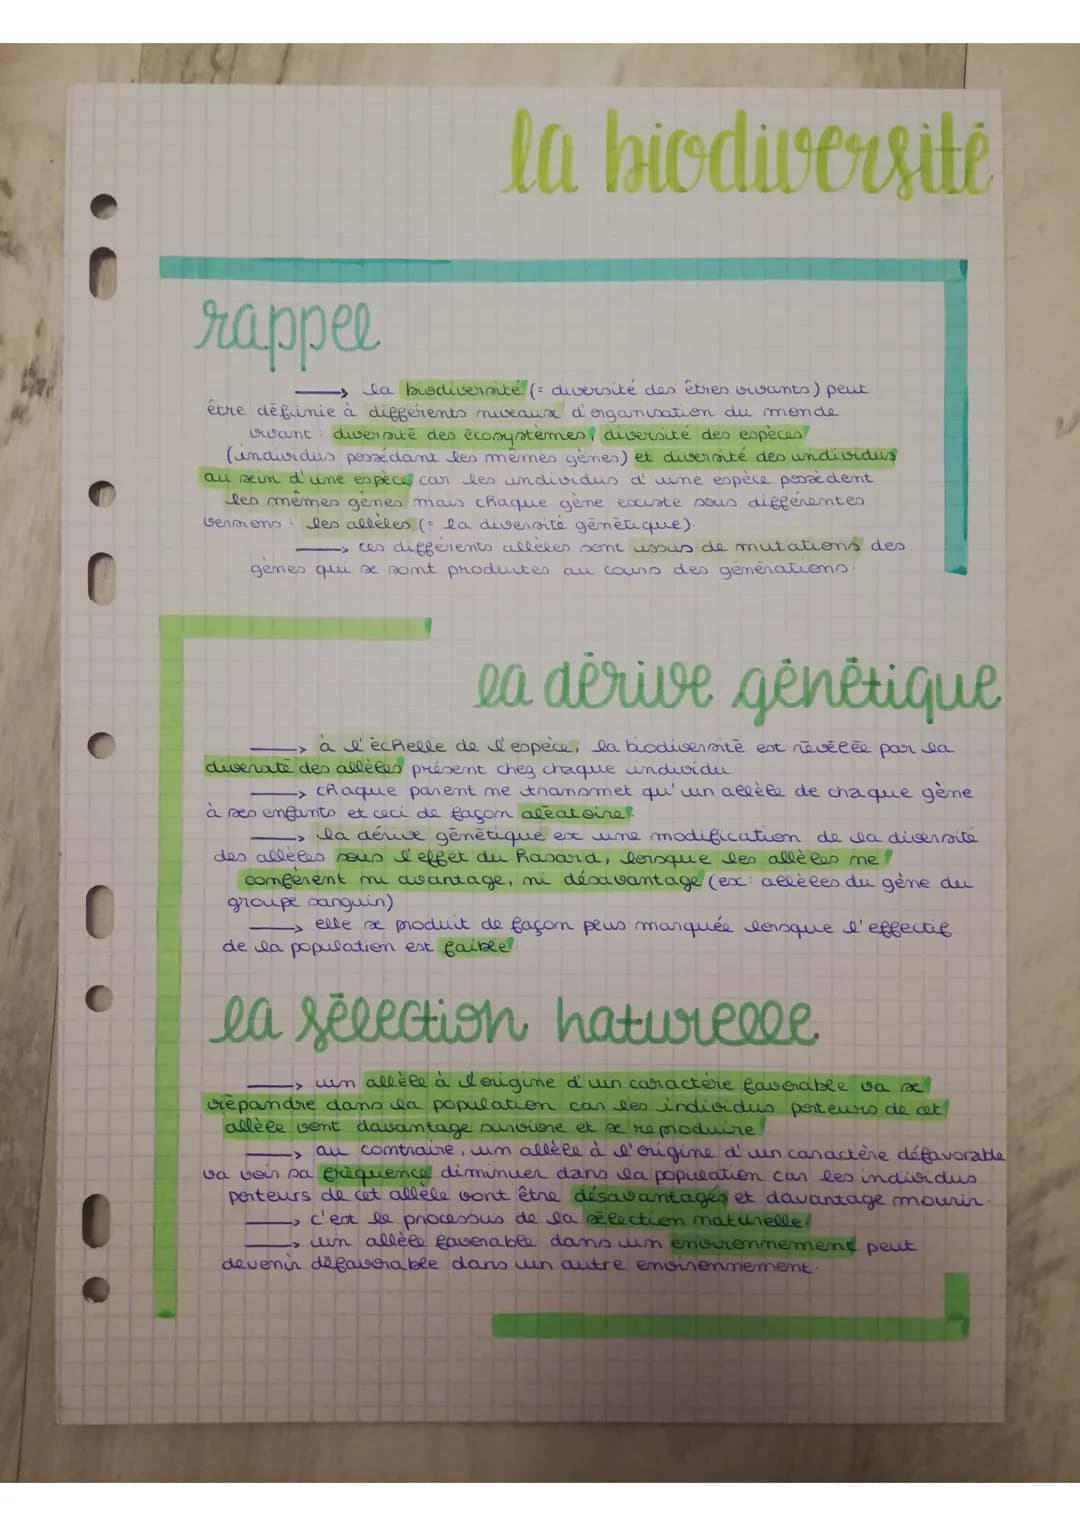 la biodiversité
rappel
→ la biodiversité (= diversité des êtres vivants) peut
être définie à différents niveaux d'organisation du monde
vivant : diversité des écosystèmes, diversité des espèces
(individus possédant les mêmes gènes) et diversité des individus
au sein d'une espèce car les individus d'une espèce possèdent
les mêmes gènes mais chaque gène existe sous différentes
versions : les allèles (= la diversité génétique).
→ ces différents allèles sont issus de mutations des
gènes qui se sont produites au cours des générations.
la dérive génétique
→ à l'échelle de l'espèce, la biodiversité est révélée par la
diversité des allèles présent chez chaque individu
→ chaque parent ne transmet qu'un allèle de chaque gène
à ses enfants et ceci de façon aléatoire.
→ la dérive génétique es une modification de la diversité
des allèles sous l'effet du hasard, lorsque les allèles ne
confèrent ni avantage, ni désavantage (ex: allèles du gène du
groupe sanguin)
→ elle se produit de façon plus marquée lorsque l'effectif
de la population est faible.
la sélection naturelle
→ un allèle à l'origine d'un caractère favorable va se
répandre dans la population car les individus porteurs de cet
allèle vont davantage survivre et se reproduire
→ au contraire, un allèle à l'origine d'un caractère défavorable
va voir sa fréquence diminuer dans la population car les individus
porteurs de cet allèle vont être désavantagés et davantage mourir.
→ c'est le processus de la sélection naturelle.
→ un allèle favorable dans un environnement peut
devenir défavorable dans un autre environnement.